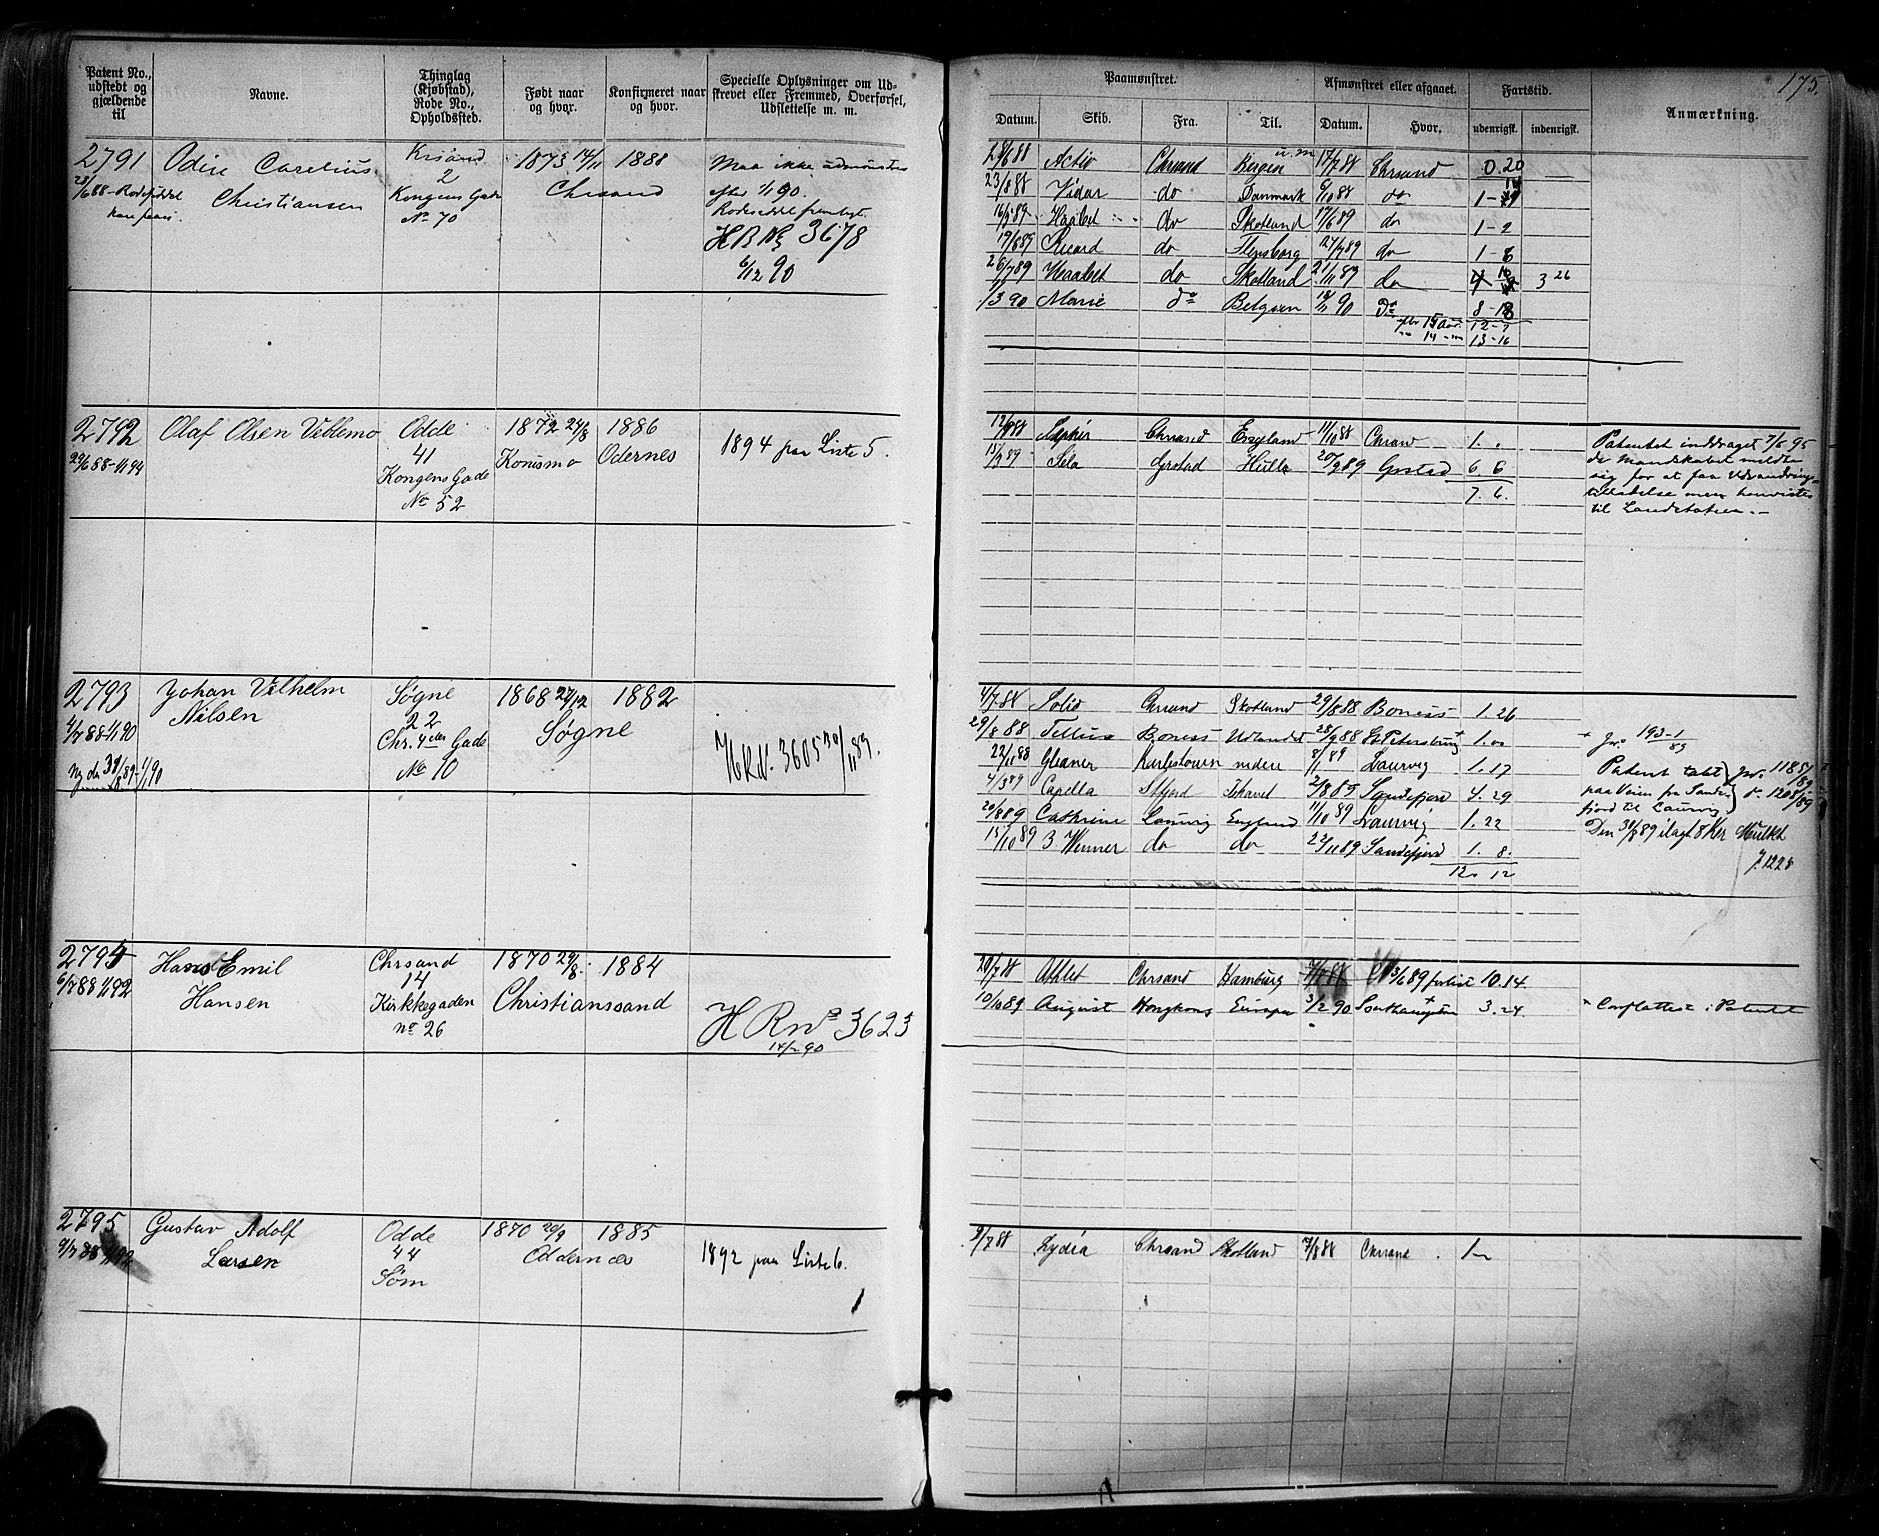 175.
Patent No., udstedt og gjældende til
Navne.
Thinglag (Kjøbstad), Rode No., Opholdssted.
Født naar og hvor.
Konfirmeret naar og hvor.
Specielle Oplysninger om Udskrevet eller Fremmed, Overførsel, Udslettelse m. m.
Paamønstret.
Afmønstret eller afgaaet.
Fartstid.
Anmærkning.
Datum.
Skib.
Fra.
Til.
Datum.
Hvor.
udenrigsk.
indenrigsk.
2791 Odin Carelius 1873 14/11 1888 Maa ikke udmønstres
Christiansen 2 Chrsand efter 1/1 90.
Kongens Gade
No 70
3678
6/12 90
28/6 88 Activ Chrsand Bergen u.m 17/7 88 Chrsand 0.20
23/8 88 Vidar do Danmark 9/10 88 do
Haabet do Skotland 17/6 89 do 1-2
19/6 89 Ricard do Flensborg 27/7 89 do 1-8
26/7 89 Haabet do Skotland 21/11 89 do 3 26
Marie do Belgien 18/11 90 Do
13-16
2792 Olaf Olsen Vetlemo Odde 1872 24/8 1886 1894 paa Liste 5.
29/6 88-1/1 94 41 Konismo Odernes
Kongens Gade
No 52
12/7 88 Saphir Chrsand England 11/10 88 Chrsand 1. .
15/3 89 Sela Grstad Hull 20/9 89 Grstad 6. 6
7. 6.
Patentet inddraget 7/5 95
da Mandskabet meldte
sig for at faa Udvandrings-
tilladelse men henvistes
til Landstaten.-
2793 Johan Vilhelm Søgne 1868 27/12 1882
Nilsen 22 Søgne
4/7 88-1/1 90 Chr. 4des Gade
No 10
Ny den 31/8 89-1/1 90
3605 30/11 89.
4/7 88 Solid Chrsand Skotland 29/8 88 Boness 1. 26
29/8 88 Tellus Boness Udlandet 28/9 88 St Petersburg + 1. 00
22/11 88 Gleaner Laurvig 1. 17
4/3 89 Capella 2/8 89 Sandefjord 4. 29
20/8 89 Cathrine Laurvig England 11/10 89 Laurvig 1. 22
15/10 89 3 Venner do do 22/11 89 Sandefjord 1. 8.
12. 12
+ Jr. 193-1/89
Patent tabt
paa Veien fra Sande-
fjord til Laurvig
Den 31/8 89 ilagt 8 Kr Mulkt
J. 1228
2794 Hans Emil Chrsand 1870 29/8 1884
6/7 88 1/1 92 Hansen 14 Christianssand
Kirkkegaden
no 26
3623
20/7 88 Athlet Chrsand Hamburg 3/6 89 forlist 10.14.
10/10 89 August Hongkong Europa 3/2 90 Southampton + 3. 24.
2795 Gustav Adolf Odde 1870 20/9 1885 1892 paa Liste 6.
9/7 88 1/1 92 Larsen 44 Oddernæs
Søm
9/7 88 Lydia Chrsand Skotland 7/8 88 Chrsand